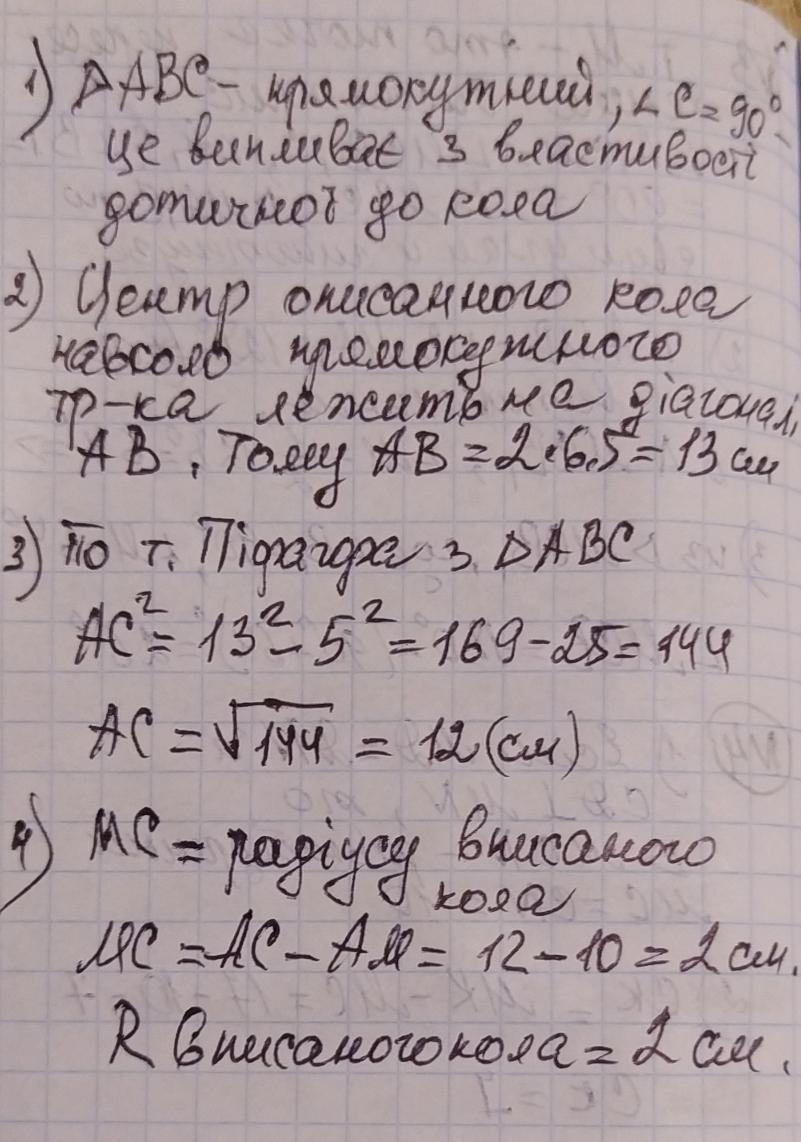 1) ΔАВС - прямокутний, ∠С=90°
це випливає з властивості
дотичної до кола
2) Центр описанного кола
навколо прямокужного
тр-ка лежить на діагоналі
АВ. Тому АВ = 2·6,5 = 13 см
3) по т. Піфагора з ΔАВС
АС² = 13² - 5² = 169 - 25 = 144
АС = √144 = 12 (см)
4) МС = радіусу вписаного
кола
МС = АС - АМ = 12 - 10 = 2 см.
R вписаного кола = 2 см.